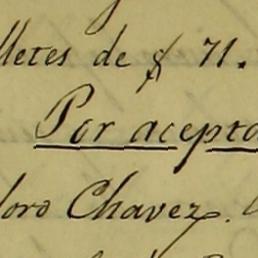 lletes de $ 71.
Por acepto
doro Chavez.